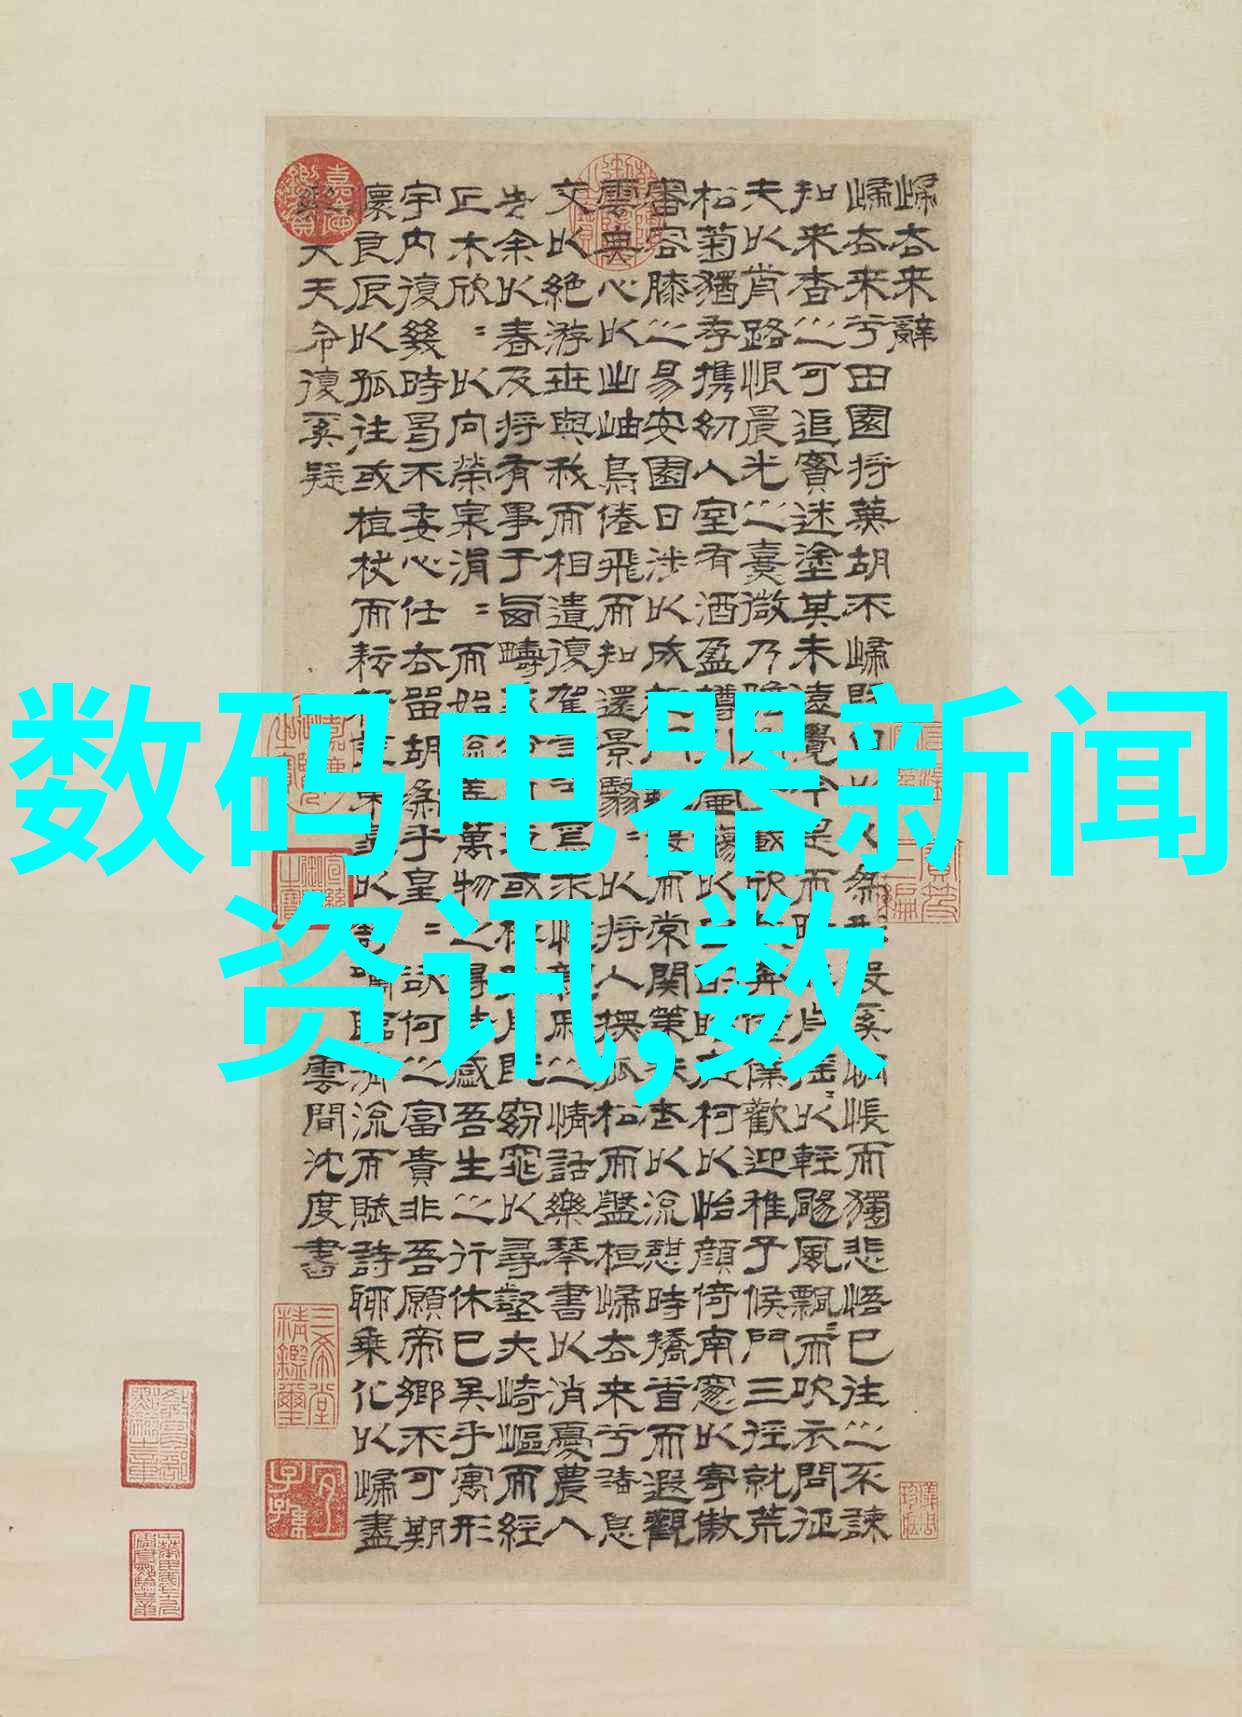 歸去来辭
歸去来兮田園將蕪胡不歸既自以心為形役奚惆悵而獨悲悟已往之不諫
知来者之可追寔迷塗其未遠覺今是而昨非舟搖=以輕颺風飄=而吹衣問征
夫以前路恨晨光之熹微乃瞻載欣載奔僮僕歡迎稚子候門三徑就荒
松菊猶存携幼入室有酒盈樽引壺觴以自酌眄庭柯以怡顏倚南窓以寄傲
審容膝之易安園日涉以成趣門雖設而常關策扶老以流憩時矯首而遐觀
雲無心以出岫鳥倦飛而知還景翳=以將入撫孤松而盤桓歸去来兮請息
交以絕游世與我而相遺復駕言兮焉求悅親戚之情話樂琴書以消憂農人
告余以春及將有事于西疇或命巾車或棹孤舟既窈窕以尋壑亦崎嶇而經
丘木欣=以向榮泉涓=而始流善萬物之得時感吾生之行休已矣乎寓形
宇内復幾時曷不委心任去留胡為乎皇=欲何之富貴非吾願帝鄉不可期
懷良辰以孤往或植杖而耘耔登東皋以舒嘯臨清流而賦詩聊乘化以歸盡
樂夫天命復奚疑
雲間沈度書
三希堂精鑑璽
宜子孫
数码电器新闻
资讯,数